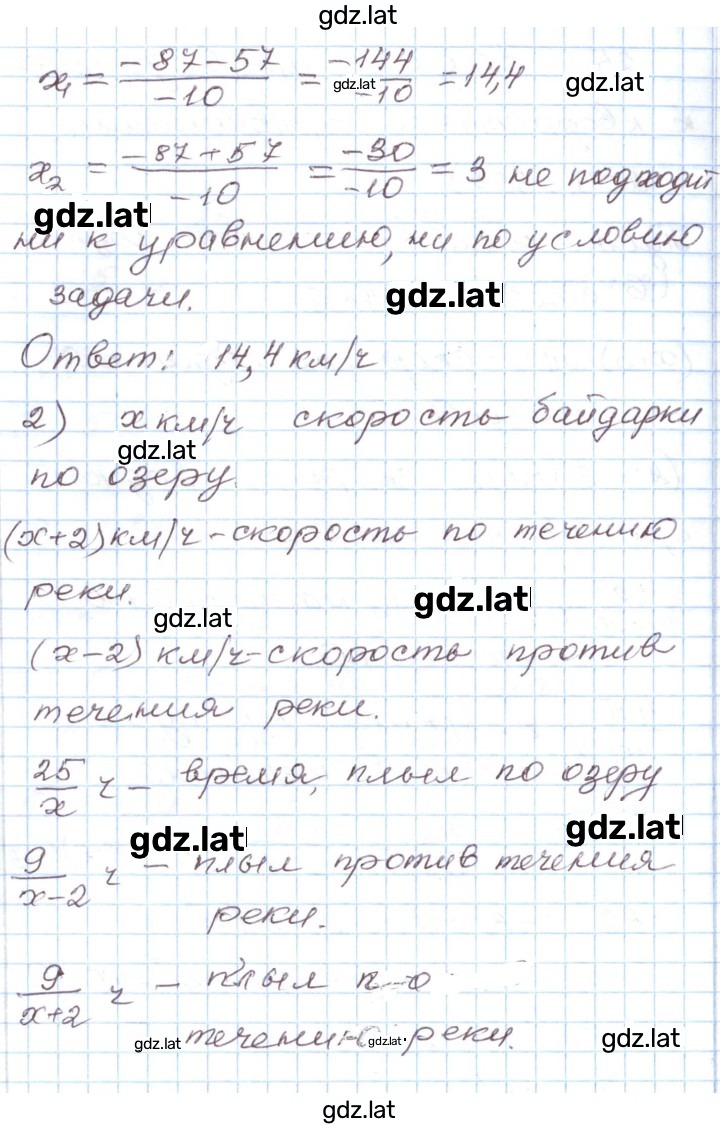 gdz.lat
x₁ = (-87-57)/(-10) = (-144)/(-10) = 14,4
gdz.lat
gdz.lat
x₂ = (-87+57)/(-10) = (-30)/(-10) = 3 не подходит
gdz.lat
ни к уравнению, ни по условию
задачи.
gdz.lat
Ответ: 14,4 км/ч
2) x км/ч скорость байдарки
gdz.lat
по озеру.
(x+2) км/ч - скорость по течению
реки.
gdz.lat
gdz.lat
(x-2) км/ч - скорость против
течения реки.
25/x ч - время, плыл по озеру
gdz.lat
gdz.lat
9/(x-2) ч - плыл против течения
реки.
9/(x+2) ч - плыл по
gdz.lat
течению реки.
gdz.lat
gdz.lat
gdz.lat